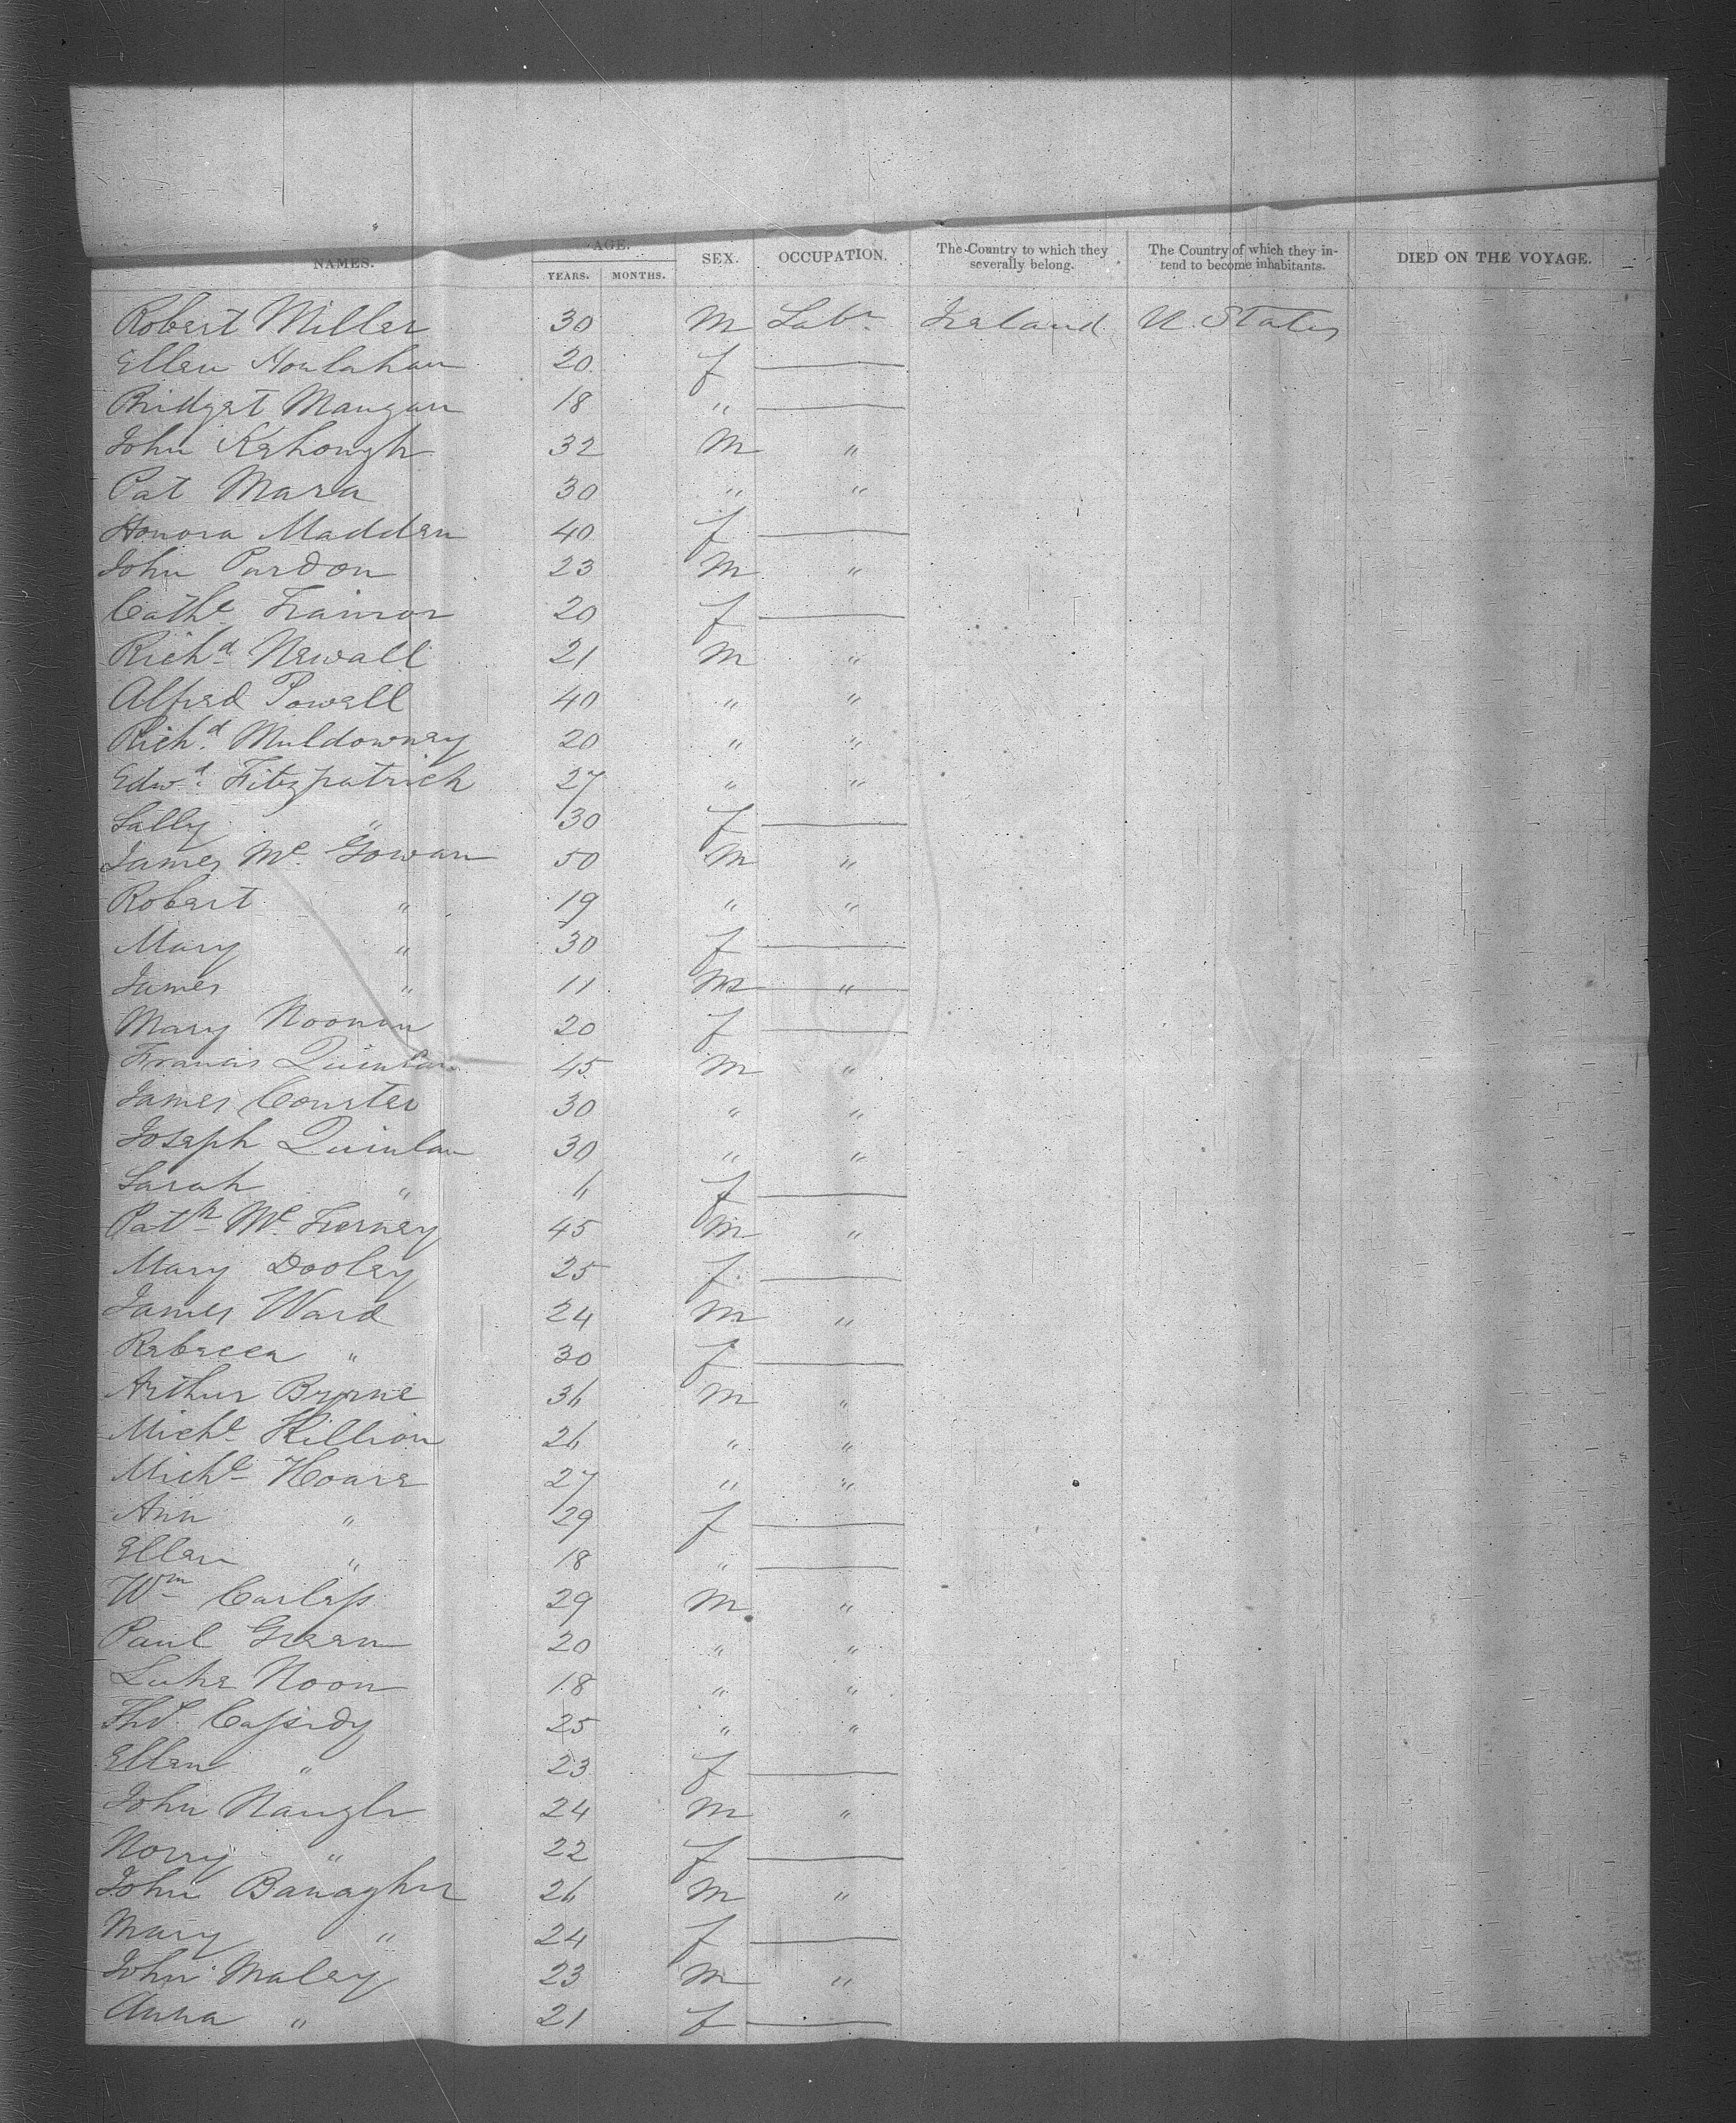 NAMES. AGE. YEARS. MONTHS. SEX. OCCUPATION. The Country to which they severally belong. The Country of which they intend to become inhabitants. DIED ON THE VOYAGE.
Robert Miller 30 M Labr Ireland U. States
Ellen Houlahan 20 f
Bridget Mangan 18 "
John Kehough 32 M "
Pat Mara 30 " "
Honora Madden 40 f
John Purdon 23 M "
Cathe Trainor 20 f
Richd Newall 21 M "
Alfred Powell 40 " "
Richd Muldowney 20 " "
Edwd Fitzpatrick 27 " "
Sally " 30 f
James Mc Gowan 50 M "
Robert " 19 " "
Mary " 30 f
James " 11 M "
Mary Noonan 20 f
Francis Quinlan 45 M "
James Courter 30 " "
Joseph Quinlan 30 " "
Sarah " 6 f
Patk Mc Tierney 45 M "
Mary Dooley 25 f
James Ward 24 M "
Rebecca " 30 f
Arthur Byrne 36 M "
Michl Killion 26 " "
Michl Hoare 27 " "
Ann " 29 f
Ellen " 18 "
Wm Carless 29 M "
Paul Green 20 " "
Luke Noon 18 " "
Thos Cassidy 25 " "
Ellen " 23 f
John Naugh 24 M "
Norry " 22 f
John Banagher 26 M "
Mary " 24 f
John Maley 23 M "
Anna " 21 f